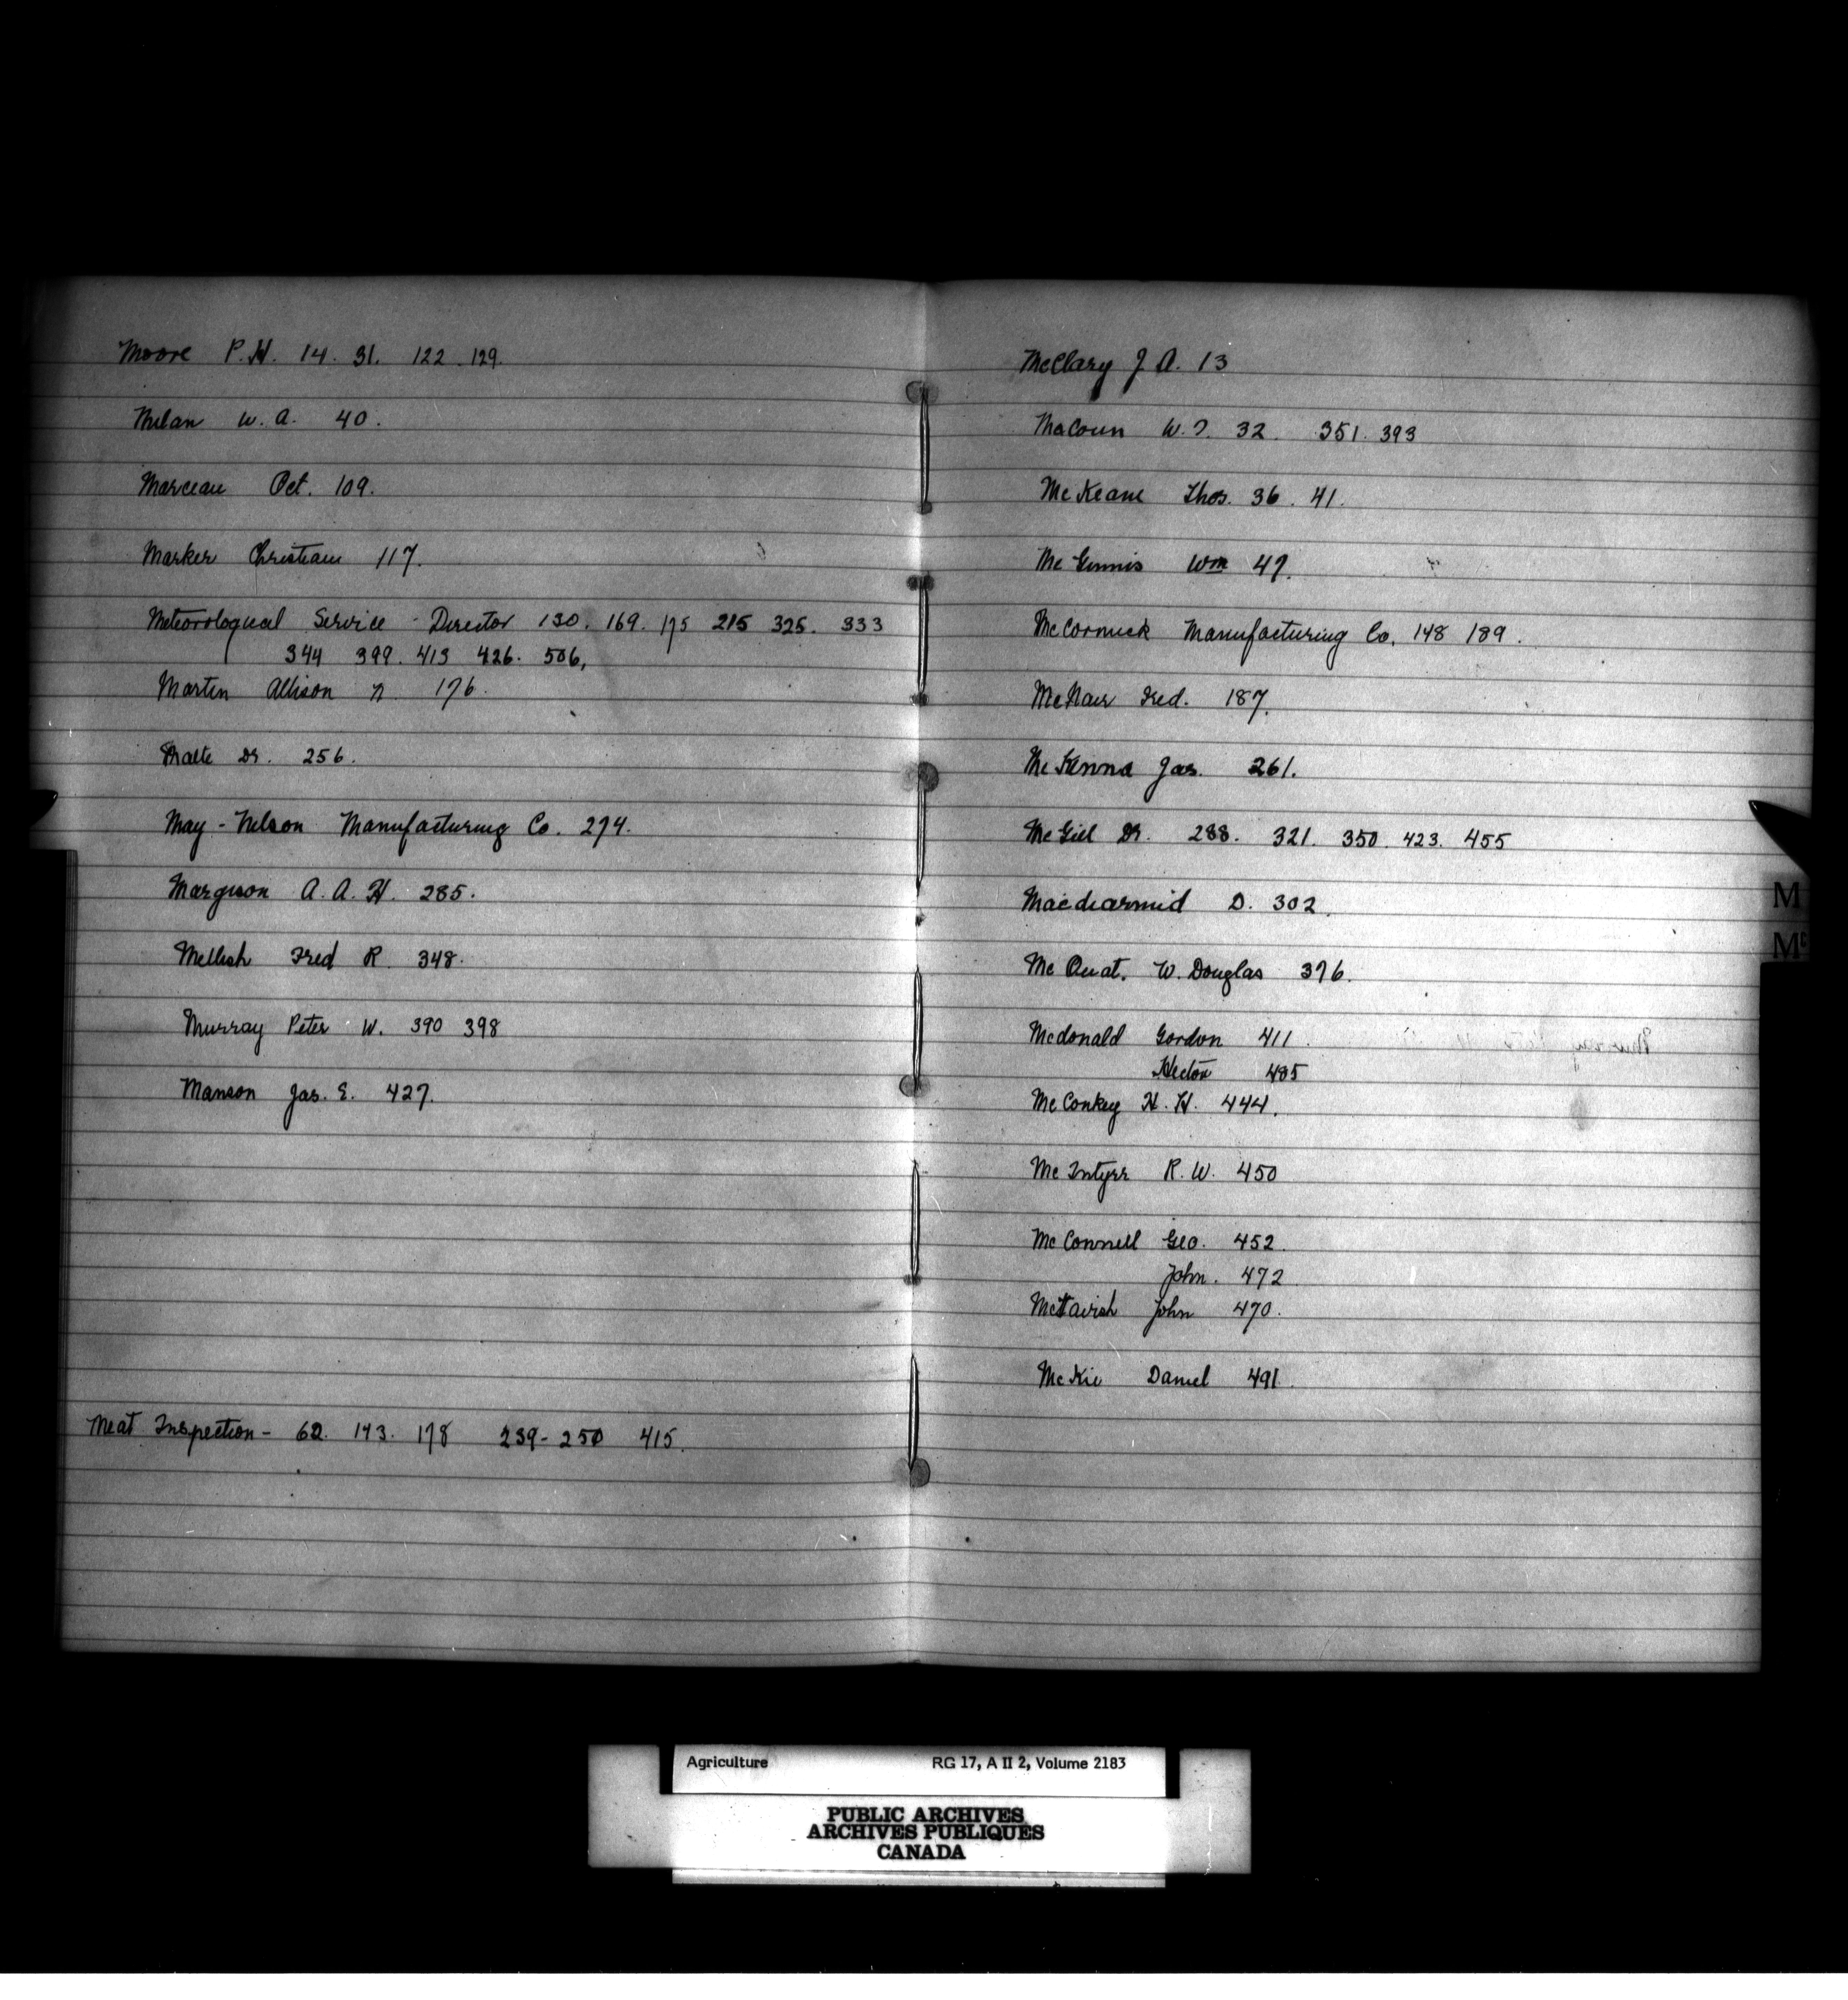 Moore P.H. 14. 31. 122. 129.
Milan W. A. 40.
Marceau Oct. 109.
Marker Christian 117.
Meteorological Service - Director 130. 169. 175 215 325. 333
344 399. 413 426. 506,
Martin Allison N 176.
Malte Dr. 256.
May - Nelson Manufacturing Co. 274.
Margison A. A. H. 285.
Mellish Fred R. 348.
Murray Peter W. 390 398
Manson Jas. E. 427.
Meat Inspection - 62. 143. 178 239 - 250 415.
McClary J. A. 13
Macoun W. T. 32. 351. 393
McKeane Thos. 36. 41.
McGinnis Wm 47.
McCormick Manufacturing Co. 148 189.
McNair Fred. 187.
McKenna Jas. 261.
McGill Dr. 288. 321. 350. 423. 455
Macdiarmid D. 302.
McOuat. W. Douglas 376.
Mcdonald Gordon 411.
Hector 485
McConkey H. H. 444.
McIntyre R. W. 450
McConnell Geo. 452.
John. 472
McTavish John 470.
McKie Daniel 491.
M
Mc
Agriculture RG 17, A II 2, Volume 2183
PUBLIC ARCHIVES
ARCHIVES PUBLIQUES
CANADA